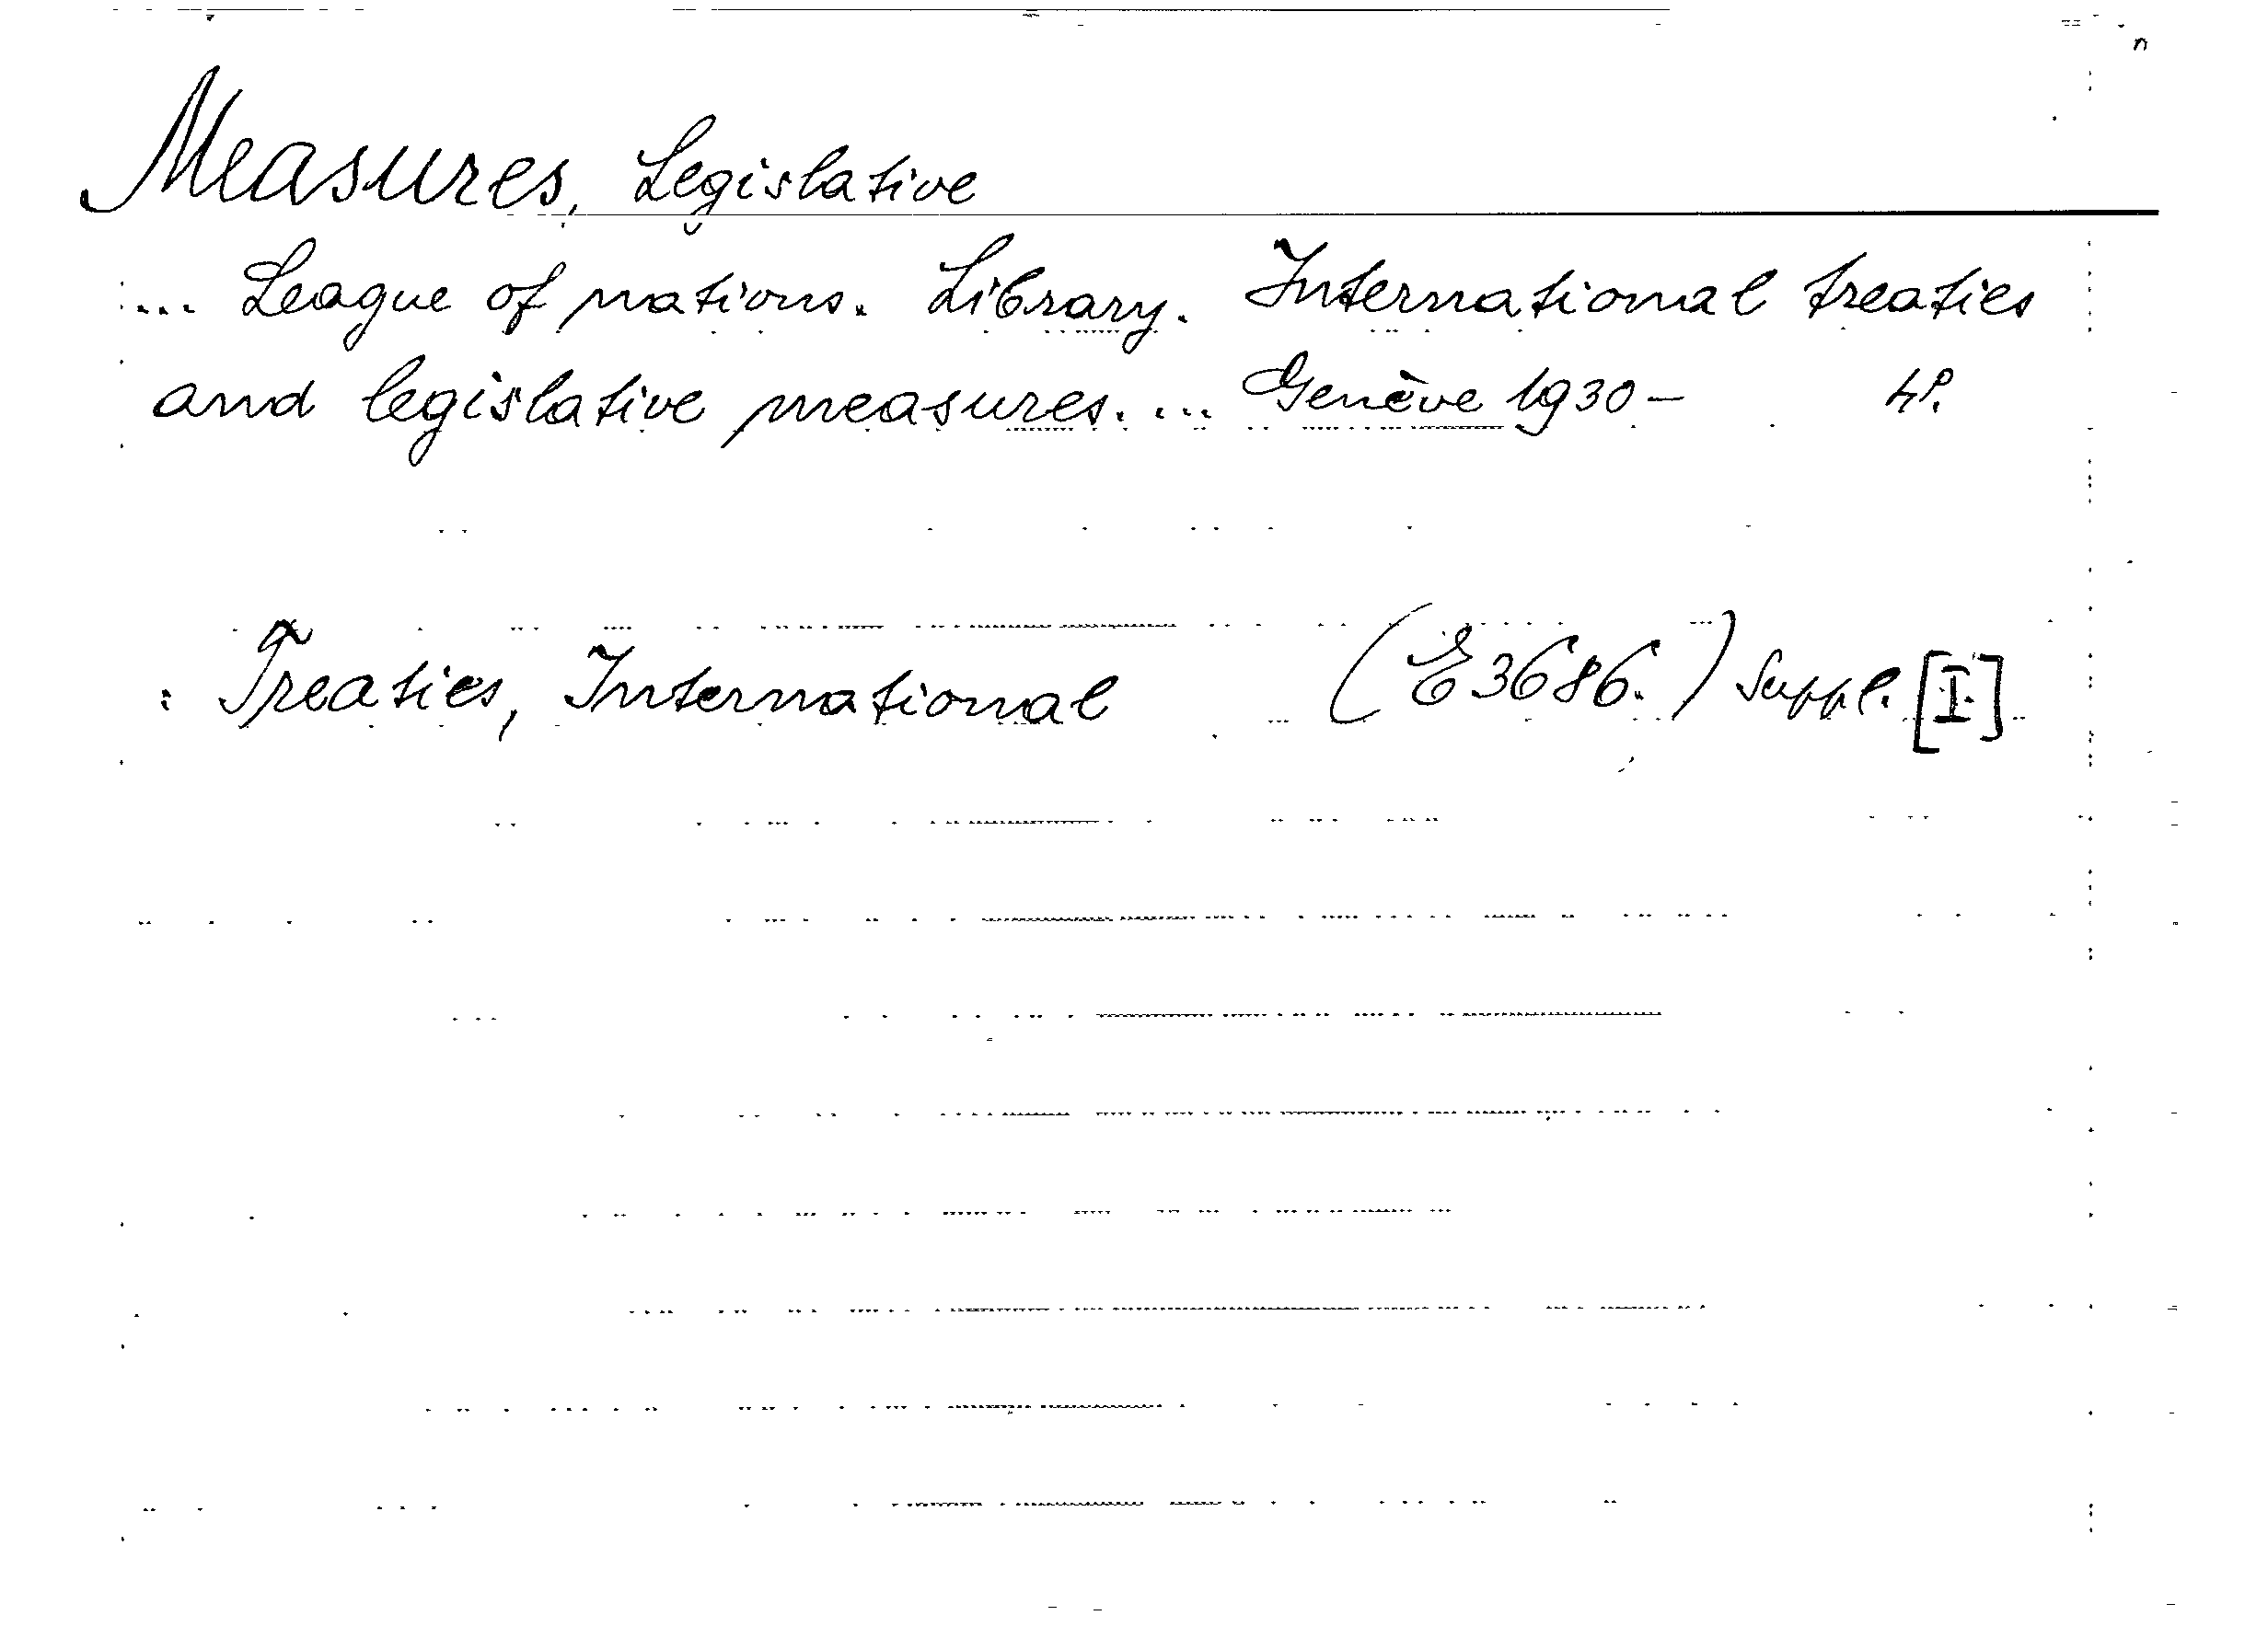 Measures, Legislative
... League of nations. Library. International treaties
and legislative measures. ... Genève 1930- 4º.
: Treaties, International (E 3686.) Suppl. [I]